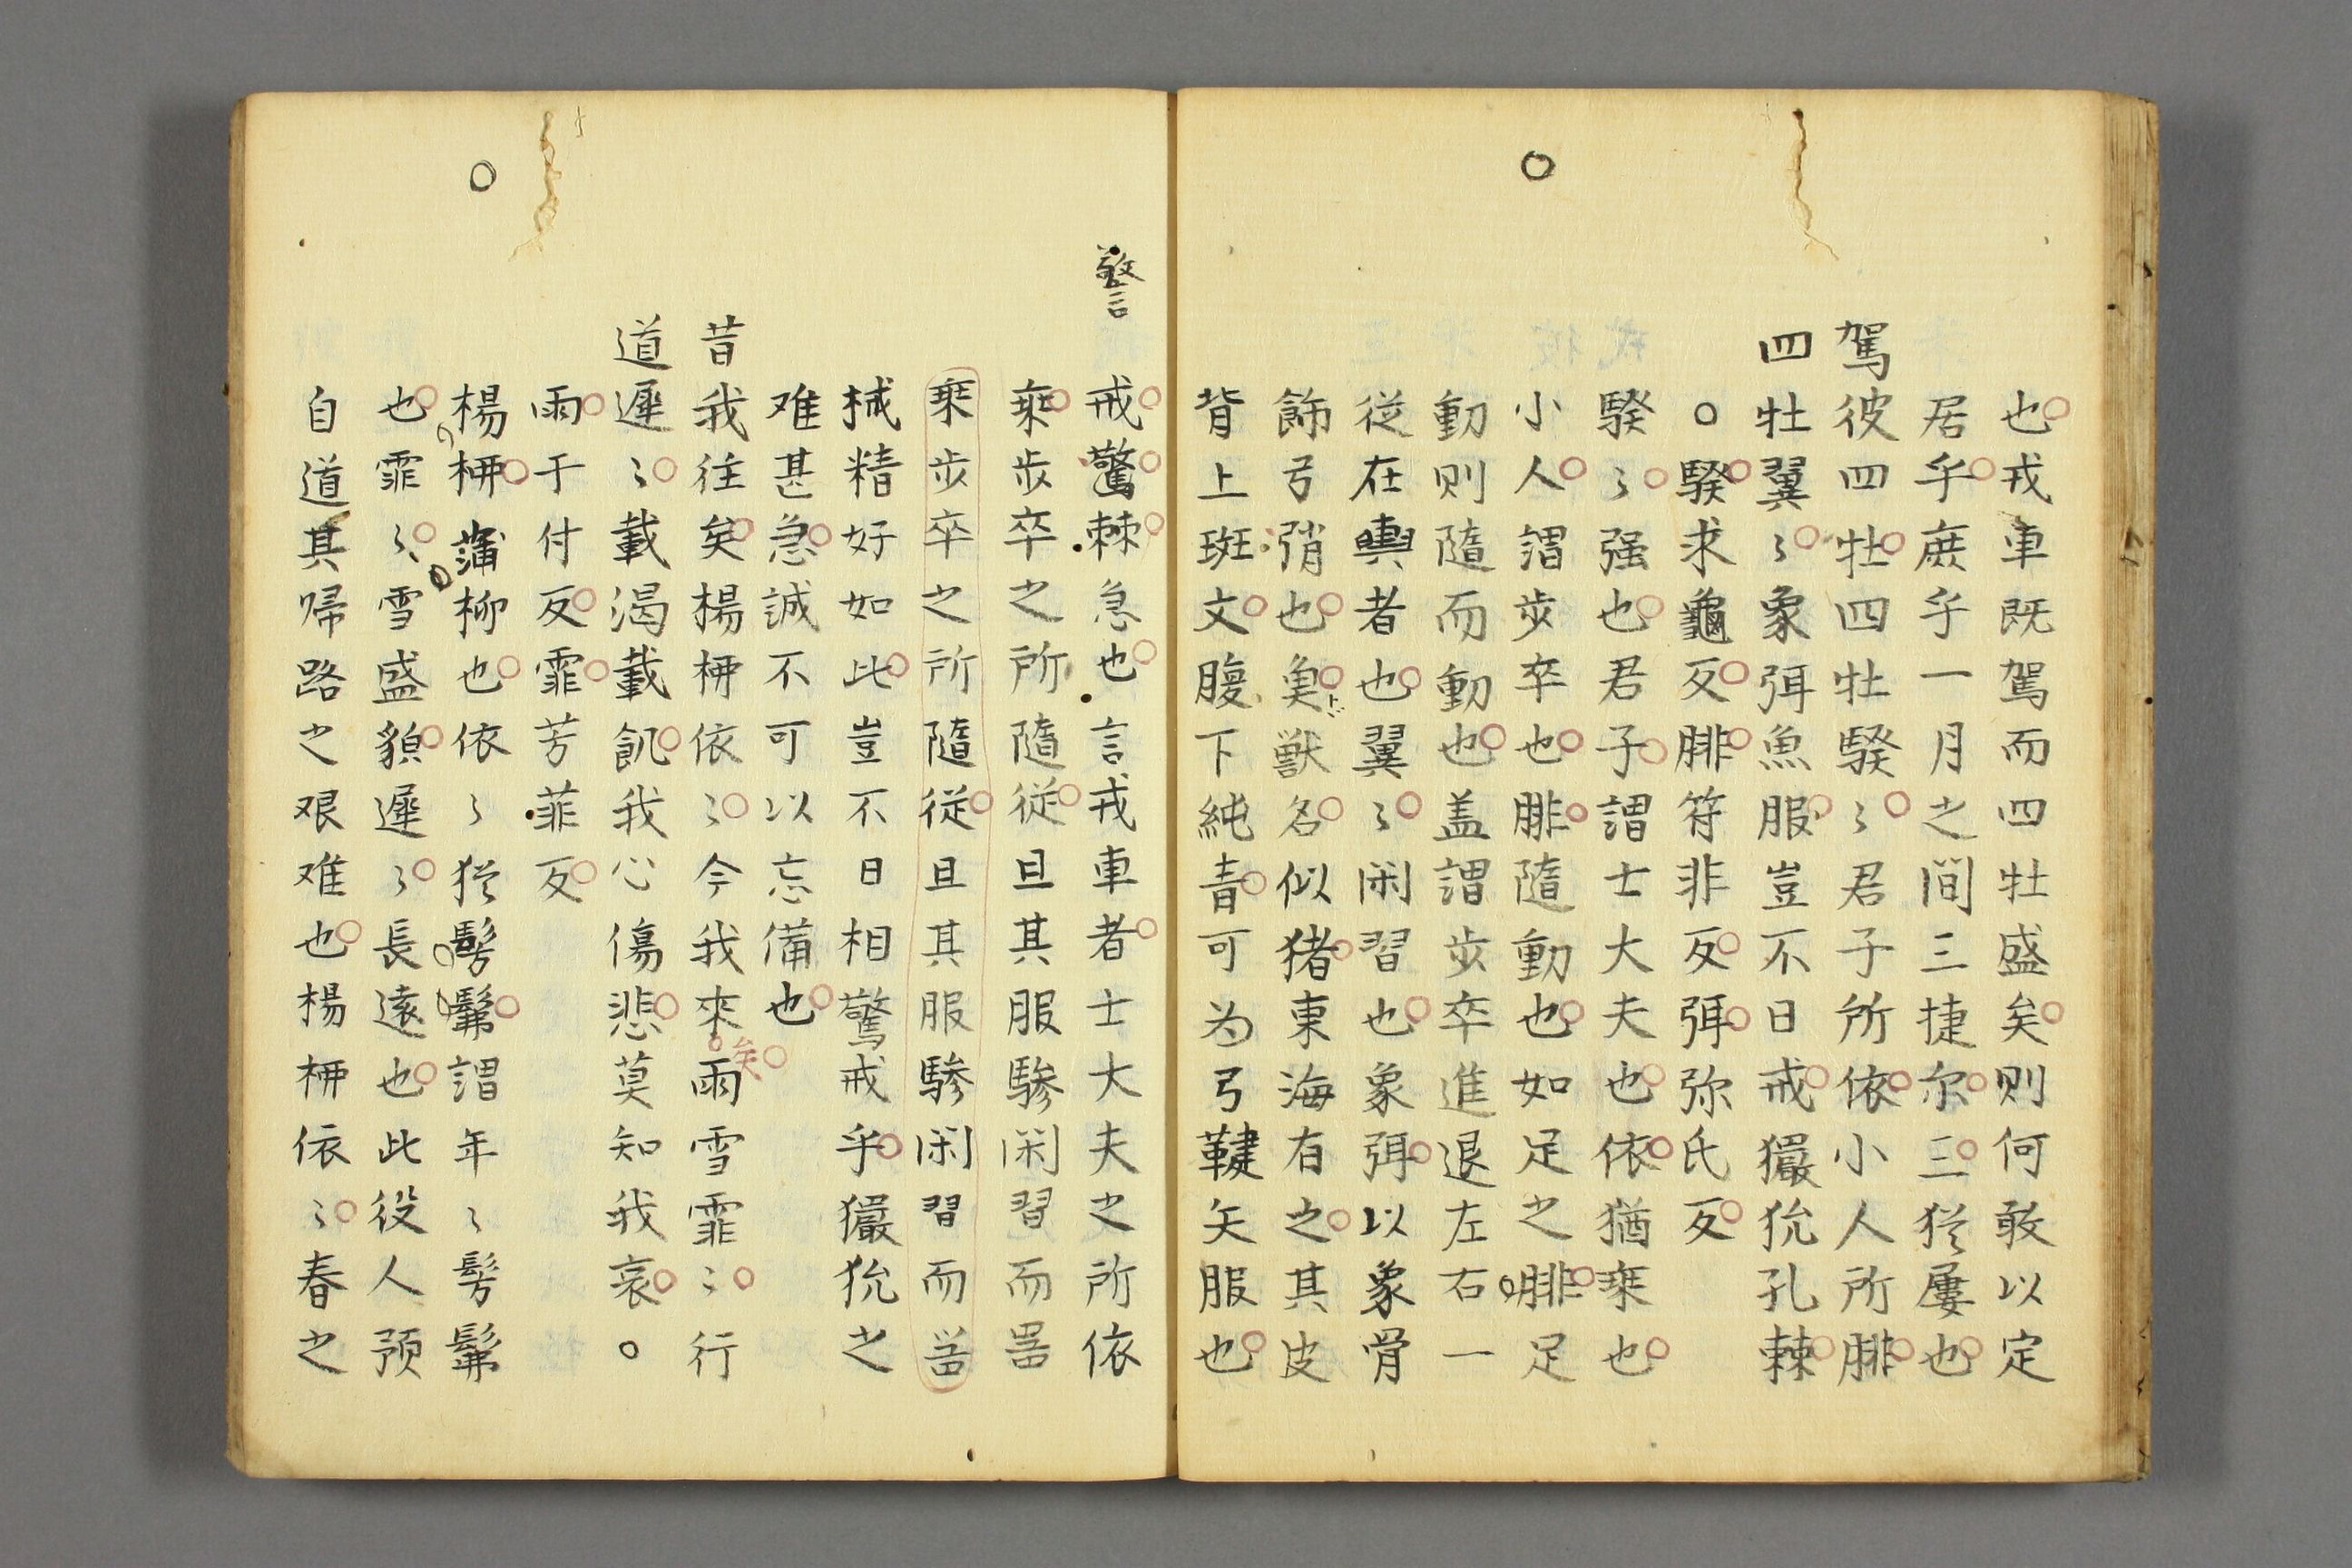 也戎車既駕而四牡盛矣則何敢以定
居乎庻乎一月之間三捷尔三犹屢也
駕彼四牡四牡騤〻君子所依小人所腓
四牡翼〻象弭魚服豈不日戒玁狁孔棘
○騤求龜反腓符非反弭弥氏反
騤〻强也君子謂士大夫也依猶乗也
小人謂步卒也腓隨動也如足之腓足
動則隨而動也盖謂步卒進退左右一
従在輿者也翼〻闲習也象弭以象骨
飾弓弰也魚獣名似猪東海有之其皮
背上斑文腹下純青可为弓鞬矢服也
警
戒驚棘急也言戎車者士大夫之所依
乗步卒之所隨従且其服駿闲習而噐
乗步卒之所隨従且其服駿闲習而噐
械精好如此豈不日相驚戒乎玁狁之
难甚急誠不可以忘備也
昔我往矣楊栁依〻今我來雨雪霏〻行
矣
道遲〻載渴載飢我心傷悲莫知我哀○
雨于付反霏芳菲反
楊栁蒲柳也依〻犹髣髴謂年〻髣髴
也霏〻雪盛貌遲〻長遠也此役人预
自道其帰路之艰难也楊栁依〻春之